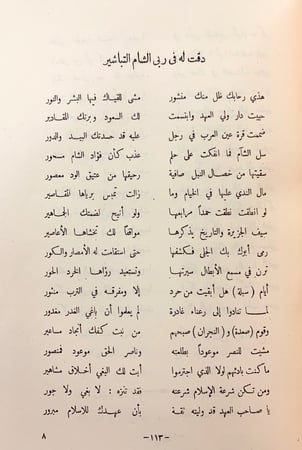 دقت له في ربى الشام التباشير
هذي رحابك ظل منك منشور مشى للقياك فيها البشر والنور
حييت دار ولي العهد وابتسمت لك السعود وبرتك المقادير
ضممت قرة عين العرب في رجل عليه قد حسدتك البيد والدور
سل الشآم اما انفكت على حلم عذب كأن فؤاد الشام مسحور
سقيتها من خصال النبل صافية رحيقها من عتيق الود معصور
مال الندي عليها في الخيام وما زالت تمس برياها المقاصير
لو انطلقت نطقت حمداً مرابعها ولو أتيح لضتك الجماهير
سيف الجزيرة والتاريخ يذكرها مواقفاً لك تخشاها الأعاصير
رمى أبرك بك الجلى فكشفتها حتى استقامت له الأمصار والكور
ترن في مسمع الأبطال سيرتها وتستعيد رؤاها الخرد الحور
أيام (سبلة) هل أبقيت من حرد إلا ومفرقه في الترب منثور
لما تنادوا إلى رعناء غادرة لم يعلموا أن باغي الغدر مغدور
وقوم (صعدة) و (النجران) صبحهم من نبت كفك أنجاد مساعير
مشيت للنصر موعوداً بطلعته وناصر الحق موعود فمنصور
ما كنت بادئهم لولا الذي اجترموا أبت لك البغي أخلاق مشاهير
ومن تكن شرعة الإسلام شرعته فقد تنزه : لا بغي ولا جور
يا صاحب العهد قد وليته ثقة بأن عهدك للاسلام مبرور
-١١٣- ٨